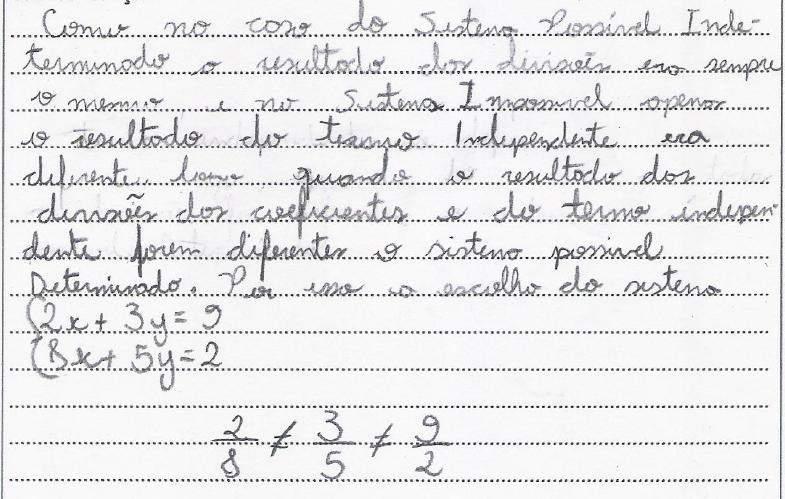 Como no caso do Sistema Possível Inde-
terminado o resultado das divisões era sempre
o mesmo e no Sistema Impossível apenas
o resultado do termo Independente era
diferente. Como quando o resultado das
divisões dos coeficientes e do termo indepen-
dente forem diferentes o sistema possivel
Determinado. Por isso a escolha do sistema
(2x + 3y = 9
(8x + 5y = 2
2/8 ≠ 3/5 ≠ 9/2